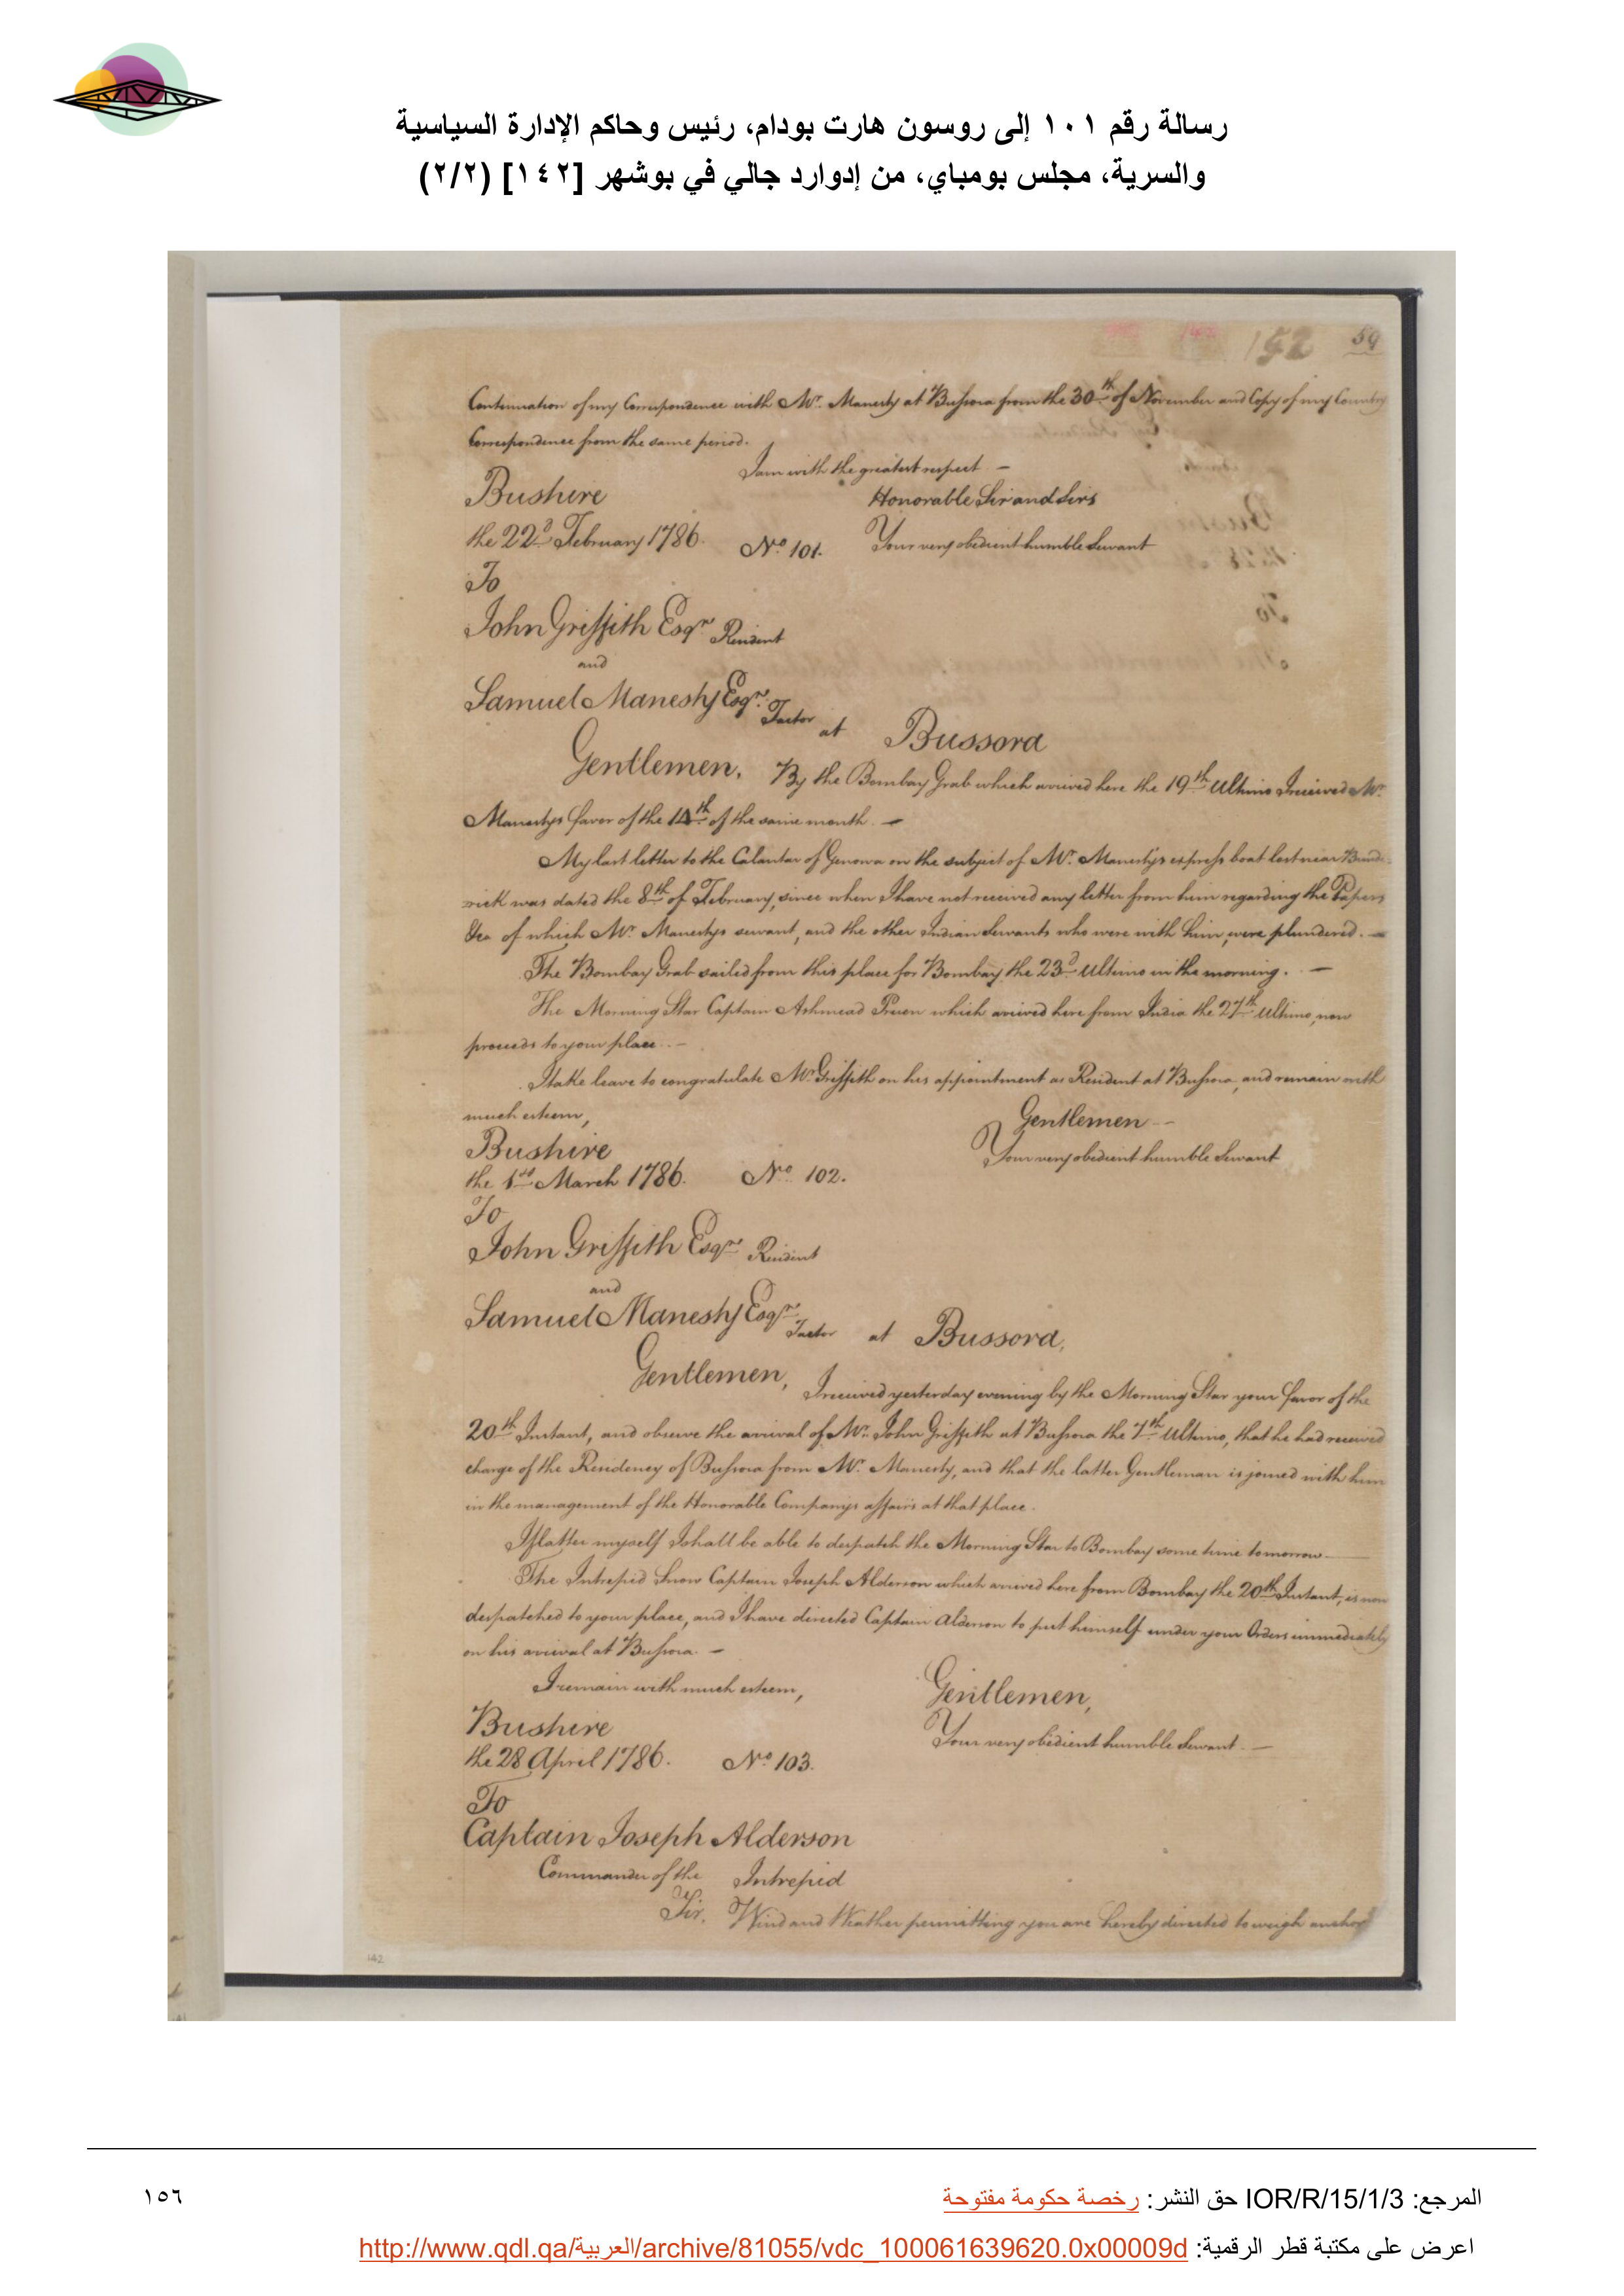 رسالة رقم ١٠١ إلى روسون هارت بودام، رئيس وحاكم الإدارة السياسية
والسرية، مجلس بومباي، من إدوارد جالي في بوشهر [١٤٢] (٢/٢)
152 59
Continuation of my Correspondence with Mr. Manesty at Bussora from the 30th of November and Copy of my Country
Correspondence from the same period.
I am with the greatest respect —
Bushire Honorable Sir and Sirs
the 22d February 1786. No. 101. Your very obedient humble Servant
To
John Griffith Esqr. Resident
and
Samuel Manesty Esqr. Factor at Bussora
Gentlemen, By the Bombay Grab which arrived here the 19th Ultimo I received Mr.
Manestys favor of the 14th of the same month. —
My last letter to the Calantar of Genowa on the subject of Mr. Manesty's express boat lost near Bunde-
rick was dated the 8th of February, since when I have not received any letter from him regarding the Papers
&ca of which Mr. Manestys servant, and the other Indian Servants who were with him, were plundered. —
The Bombay Grab sailed from this place for Bombay the 23d Ultimo in the morning. —
The Morning Star Captain Ashmead Pruen which arrived here from India the 27th Ultimo, now
proceeds to your place. —
I take leave to congratulate Mr. Griffith on his appointment as Resident at Bussora, and remain with
much esteem, Gentlemen —
Bushire Your very obedient humble Servant
the 1st March 1786. No. 102.
To
John Griffith Esqr. Resident
and
Samuel Manesty Esqr. Factor at Bussora,
Gentlemen, I received yesterday evening by the Morning Star your favor of the
20th Instant, and observe the arrival of Mr. John Griffith at Bussora the 7th Ultimo, that he had received
charge of the Residency of Bussora from Mr. Manesty, and that the latter Gentleman is joined with him
in the management of the Honorable Companys affairs at that place.
I flatter myself I shall be able to despatch the Morning Star to Bombay some time tomorrow —
The Intrepid Snow Captain Joseph Alderson which arrived here from Bombay the 20th Instant, is now
despatched to your place, and I have directed Captain Alderson to put himself under your Orders immediately
on his arrival at Bussora. —
I remain with much esteem, Gentlemen,
Bushire Your very obedient humble Servant. —
the 28 April 1786. No. 103.
To
Captain Joseph Alderson
Commander of the Intrepid
Sir, Wind and Weather permitting you are hereby directed to weigh anchor
142
المرجع: IOR/R/15/1/3 حق النشر: رخصة حكومة مفتوحة
١٥٦
اعرض على مكتبة قطر الرقمية: http://www.qdl.qa/العربية/archive/81055/vdc_100061639620.0x00009d